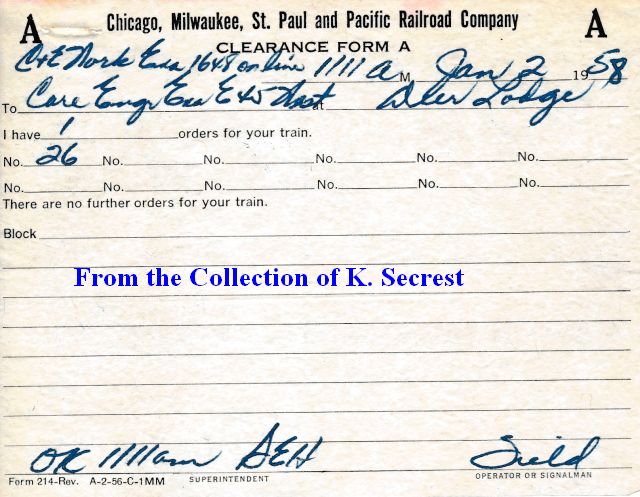 A Chicago, Milwaukee, St. Paul and Pacific Railroad Company A
CLEARANCE FORM A
C+E Work Exa 1648 on line 1111 A M Jan 2 1958
To Care Engr Exa E45 West at Deer Lodge
I have 1 orders for your train.
No. 26 No. No. No. No. No.
No. No. No. No. No. No.
There are no further orders for your train.
Block
From the Collection of K. Secrest
OK 1111am DEH
SUPERINTENDENT
OPERATOR OR SIGNALMAN
Form 214-Rev. A-2-56-C-1MM